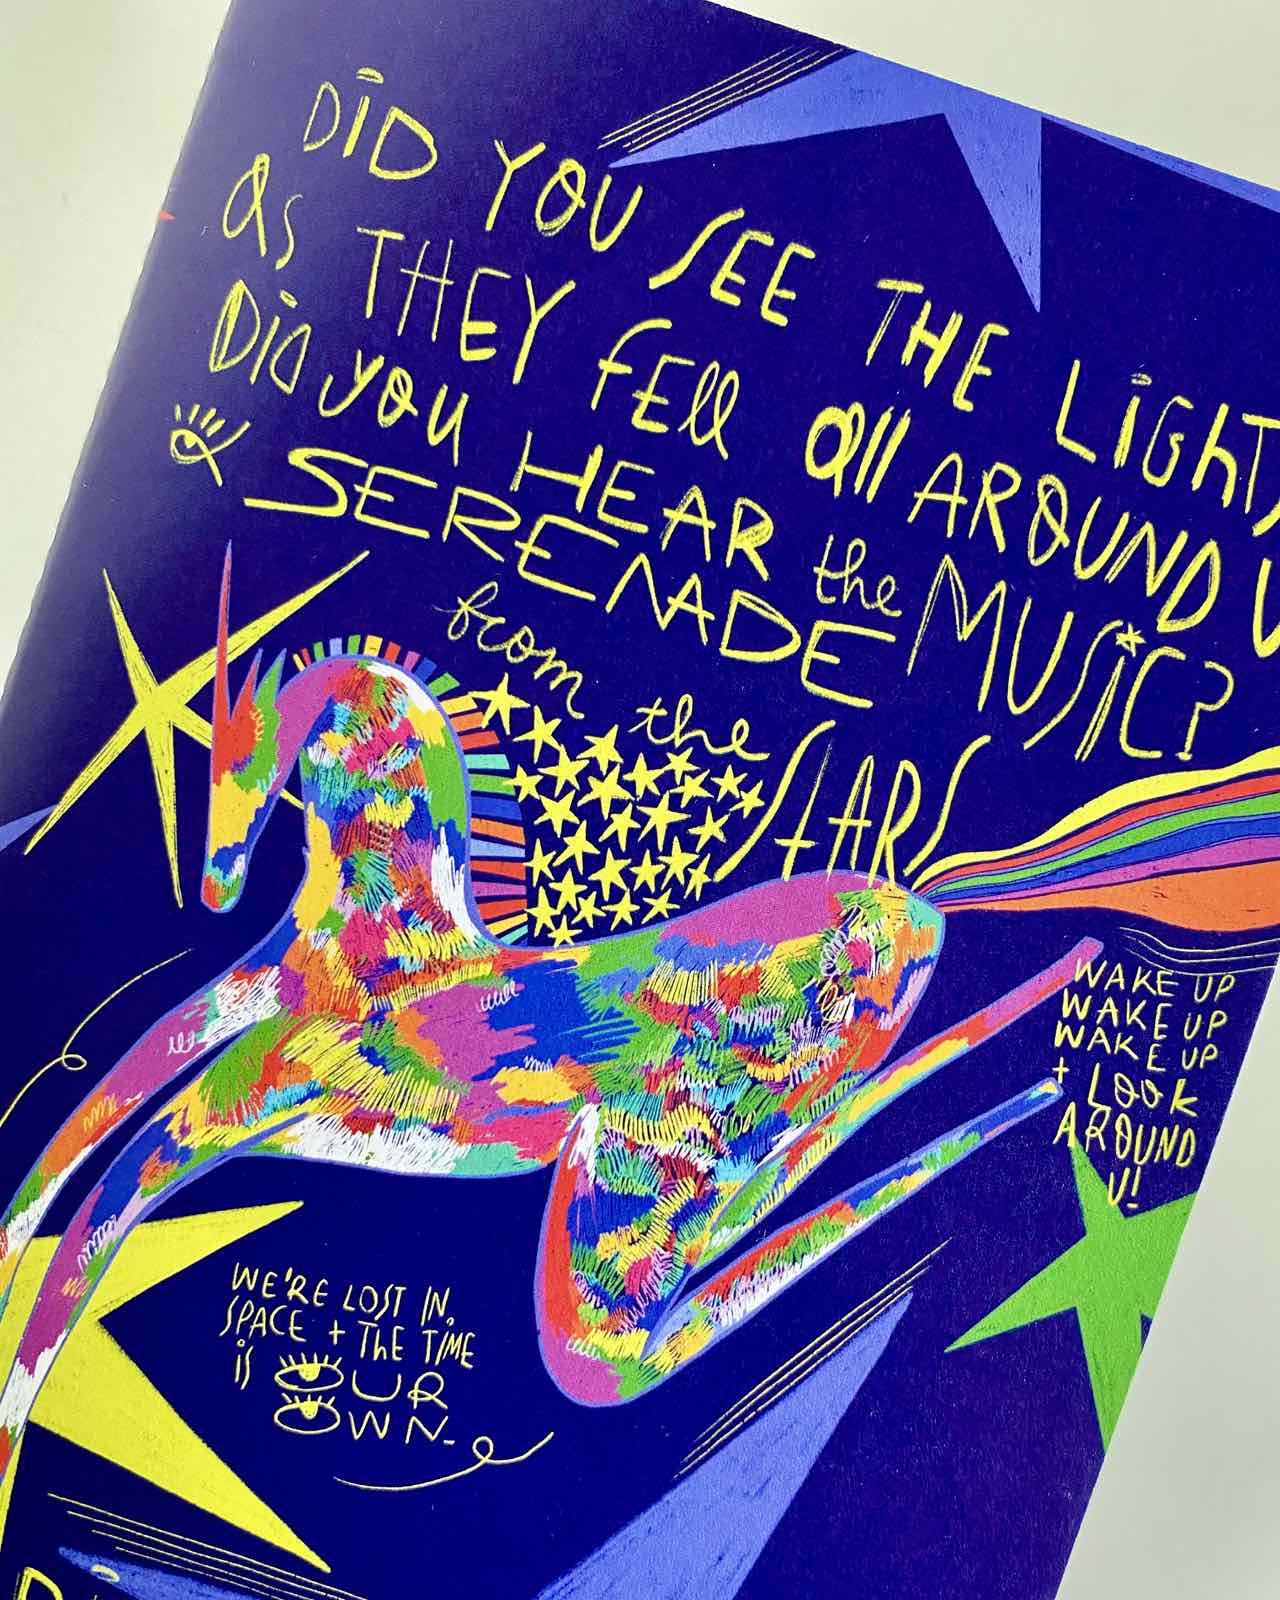 DiD YOU SEE THE LiGhTS
as THEY FEll all AROUND U
DiD you HEAR the MUSiC?
SERENADE
from the STARS
WAKE UP
WAKE UP
WAKE UP
+ LOOK
AROUND
U!
WE'RE LOST IN
SPACE + ThE TiME
iS OUR
OWN-